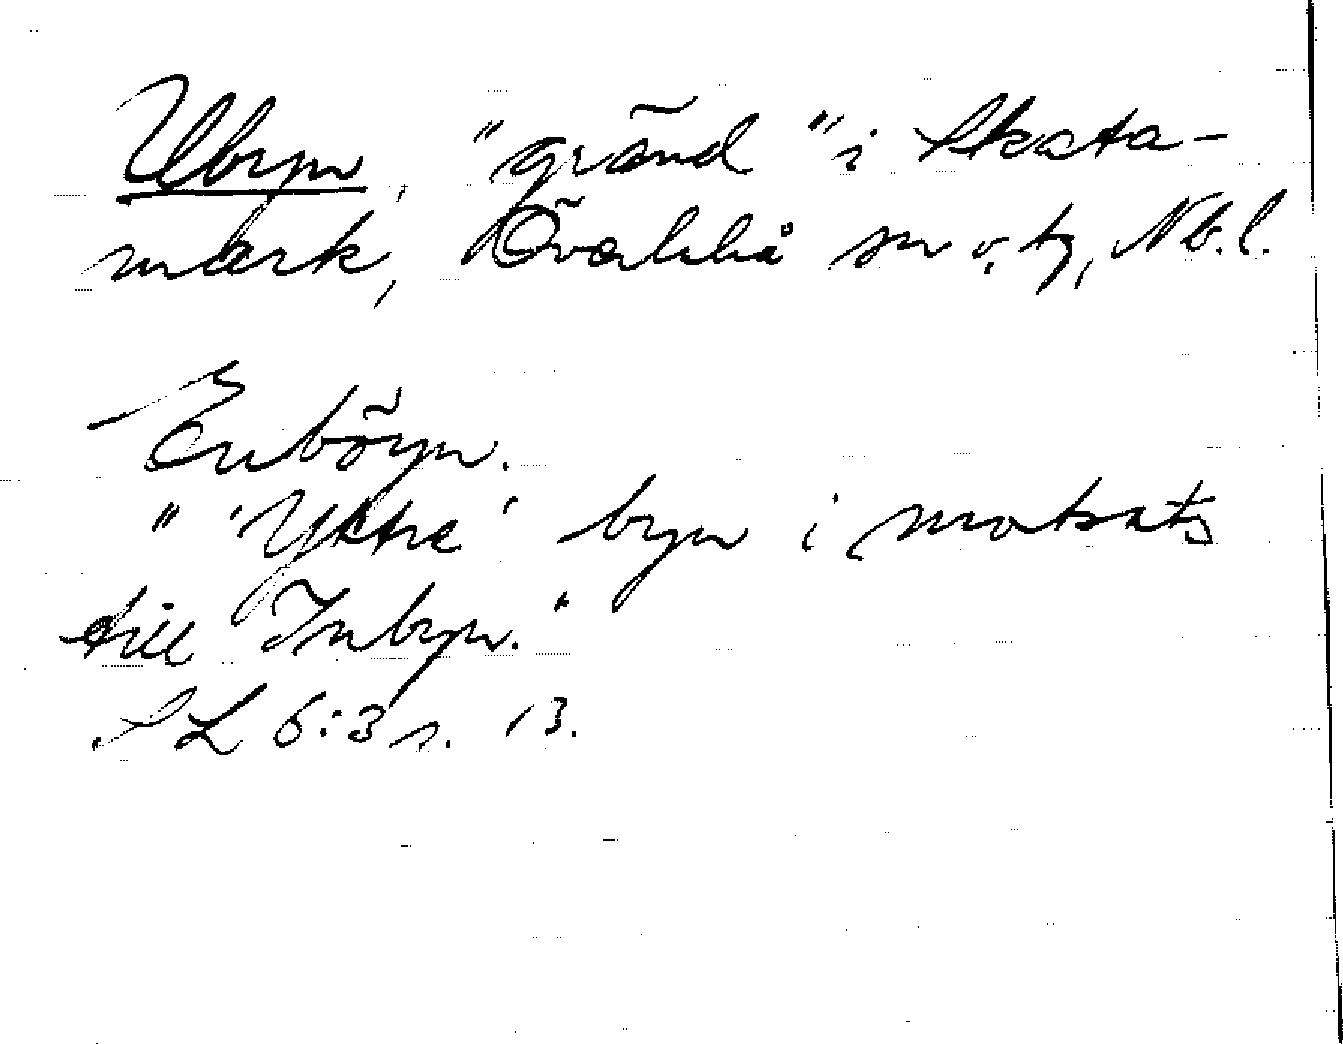 Ubyn, "gränd" i Skata-
mark, Överluleå sn o. tg, Nb.l.
Enböyn.
"'Yttre' byn i motsats
till Inbyn."
SL 6:3 s. 13.